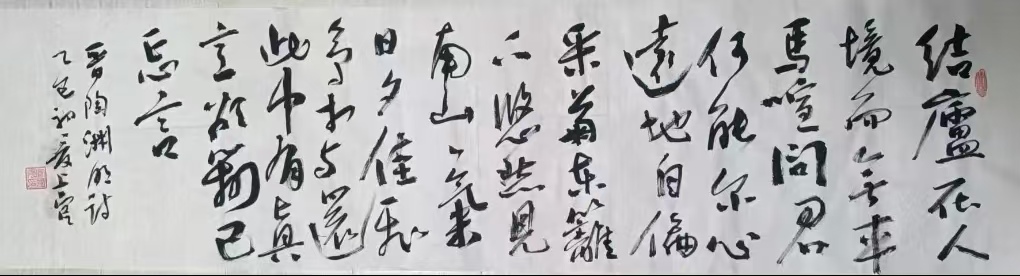 結廬在人
境而無車
馬喧問君
何能尔心
遠地自偏
采菊東籬
下悠然見
南山々氣
日夕佳飛
鳥相与還
此中有真
意欲辨已
忘言
晋陶淵明詩
乙巳初夏上官